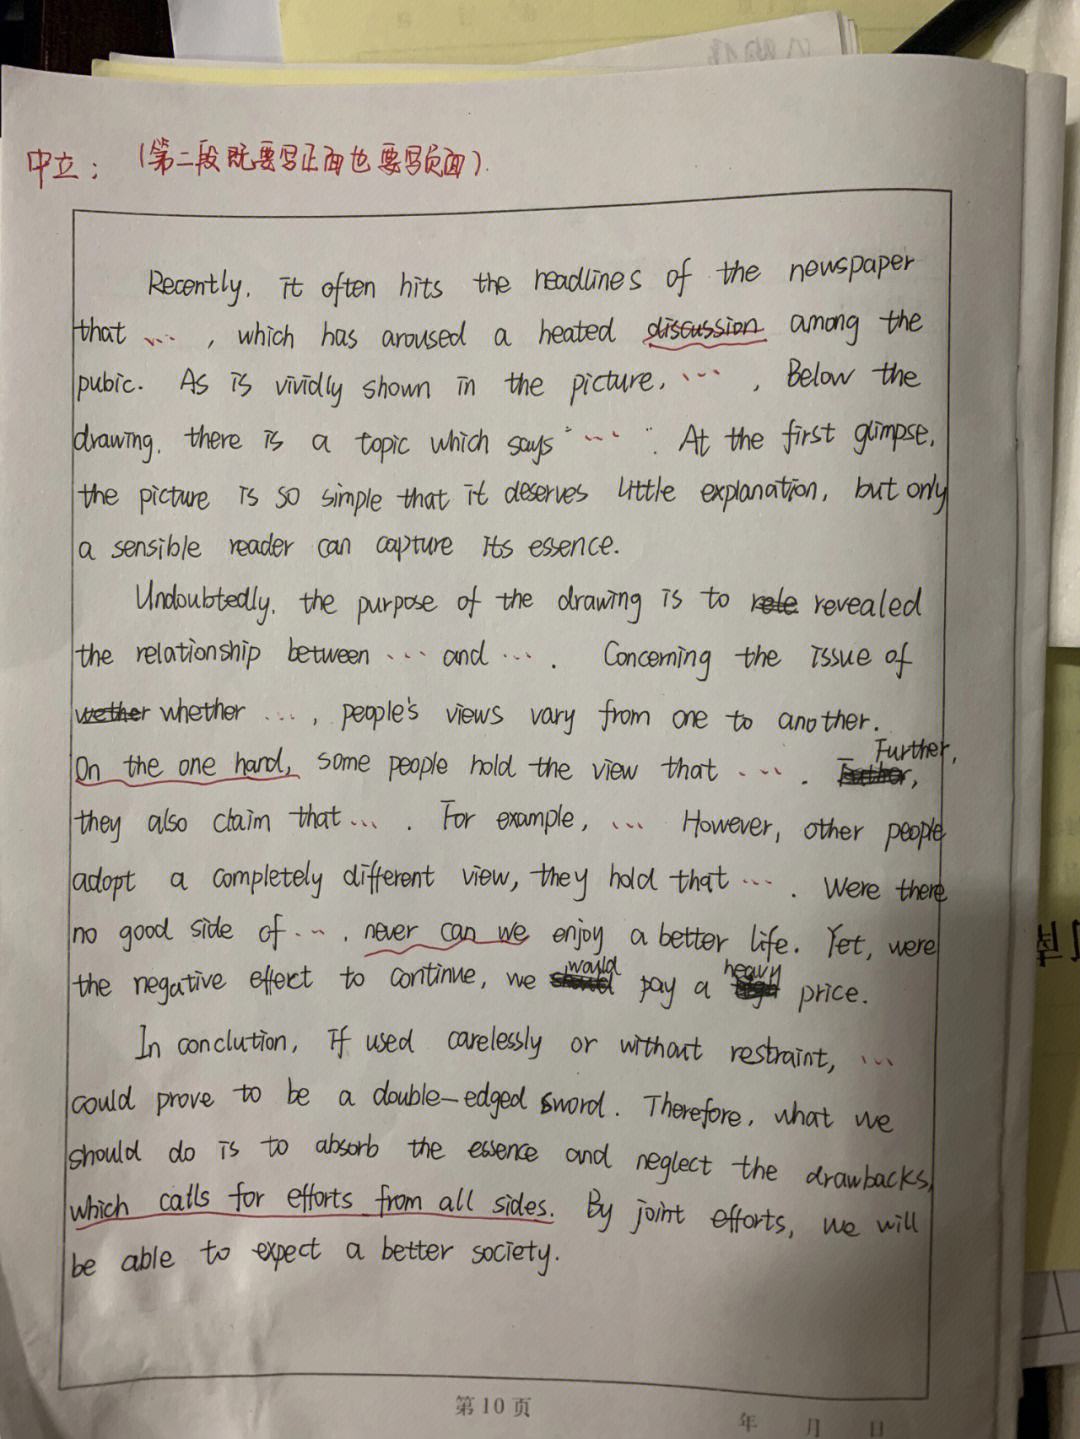 中立：（第二段既要写正面也要写负面）.
Recently, it often hits the headlines of the newspaper
that ..., which has aroused a heated discussion among the
pubic. As is vividly shown in the picture, ..., Below the
drawing, there is a topic which says "...". At the first glimpse,
the picture is so simple that it deserves little explanation, but only
a sensible reader can capture its essence.
Undoubtedly, the purpose of the drawing is to revealed
the relationship between ... and .... Concerning the issue of
wether whether ..., people's views vary from one to another.
On the one hand, some people hold the view that .... Further,
they also claim that .... For example, ... However, other people
adopt a completely different view, they hold that .... Were there
no good side of ..., never can we enjoy a better life. Yet, were
the negative effect to continue, we would pay a heavy price.
In conclution, if used carelessly or without restraint, ...
could prove to be a double-edged sword. Therefore, what we
should do is to absorb the essence and neglect the drawbacks,
which calls for efforts from all sides. By joint efforts, we will
be able to expect a better society.
第10页
年 月 日